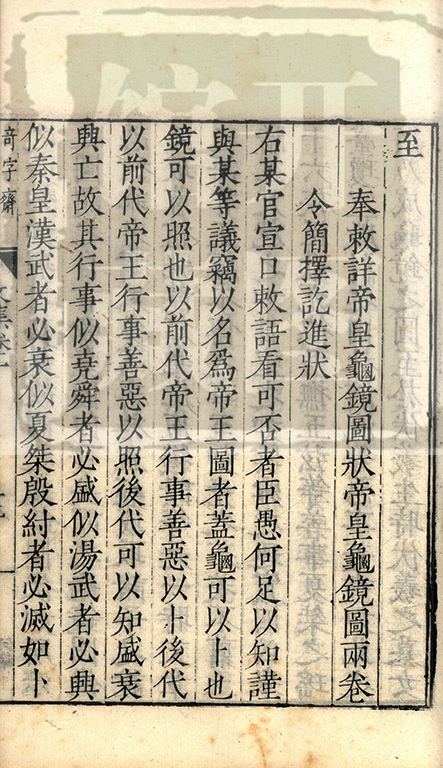 至
奉敕詳帝皇龜鏡圖狀帝皇龜鏡圖兩卷
令簡擇訖進狀
右某官宣口敕語看可否者臣愚何足以知謹
與某等議竊以名爲帝王圖者蓋龜可以卜也
鏡可以照也以前代帝王行事善惡以卜後代
以前代帝王行事善惡以照後代可以知盛衰
興亡故其行事似堯舜者必盛似湯武者必興
似秦皇漢武者必衰似夏桀殷紂者必滅如卜
奇字齋
文集卷十